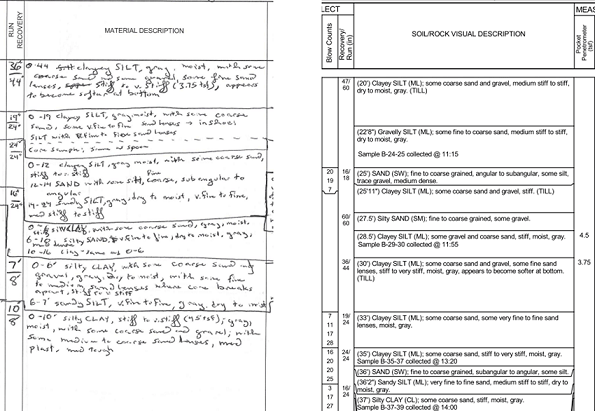 RUN
RECOVERY
MATERIAL DESCRIPTION
36
44
0-44 clayey SILT, gray, moist, with some
coarse sand and some gravel, some fine sand
lenses, stiff to v. stiff (3.75 tsf), appears
to become softer at bottom
19"
24"
0-19 clayey SILT, gray, moist, with some coarse
sand, some v.fine to fine sand lenses → in shoe:
SILT with v.fine to fine sand lenses
24"
24"
Core sample, same as above
0-12 clayey SILT, gray, moist, with some coarse sand,
stiff to v. stiff
12-14 SAND with some silt, coarse, subangular to
angular
16"
24"
14-24 sandy SILT, gray, dry to moist, v.fine to fine,
med stiff to stiff
0-6 silty CLAY, with some coarse sand, gray, moist,
6-10 silty SAND, v.fine to fine, dry to moist, gray,
10-16 clay - same as 0-6
7'
8'
0-6' silty CLAY, with some coarse sand and
gravel, gray, dry to moist, with some fine
to medium sand lenses where core breaks
apart, stiff to v. stiff
6-7' sandy SILT, v.fine to fine, gray, dry to moist
10
8
0-10' silty CLAY, stiff to v. stiff (4.5 tsf), gray,
moist, with some coarse sand and gravel, with
some medium to coarse sand lenses, med
plast. med tough
LECT
MEAS
Blow Counts
Recovery/
Run (in)
SOIL/ROCK VISUAL DESCRIPTION
Pocket
Penetrometer
(tsf)
47/
60
(20') Clayey SILT (ML); some coarse sand and gravel, medium stiff to stiff,
dry to moist, gray. (TILL)
(22'8") Gravelly SILT (ML); some fine to coarse sand, medium stiff to stiff,
dry to moist, gray.
Sample B-24-25 collected @ 11:15
20
19
7
16/
18
(25') SAND (SW); fine to coarse grained, angular to subangular, some silt,
trace gravel, medium dense.
(25'11") Clayey SILT (ML); some coarse sand and gravel, stiff. (TILL)
60/
60
(27.5') Silty SAND (SM); fine to coarse grained, some gravel.
(28.5') Clayey SILT (ML); some gravel and coarse sand, stiff, moist, gray.
Sample B-29-30 collected @ 11:55
4.5
36/
44
(30') Clayey SILT (ML); some coarse sand and gravel, some fine sand
lenses, stiff to very stiff, moist, gray, appears to become softer at bottom.
(TILL)
3.75
7
11
17
28
19/
24
(33') Clayey SILT (ML); some coarse sand, some very fine to fine sand
lenses, moist, gray.
16
20
20
25
24/
24
(35') Clayey SILT (ML); some coarse sand, stiff to very stiff, moist, gray.
Sample B-35-37 collected @ 13:20
(36') SAND (SW); fine to coarse grained, subangular to angular, some silt.
(36'2") Sandy SILT (ML); very fine to fine sand, medium stiff to stiff, dry to
moist, gray.
3
17
27
16/
24
(37') Silty CLAY (CL); some coarse sand, moist, gray.
Sample B-37-39 collected @ 14:00